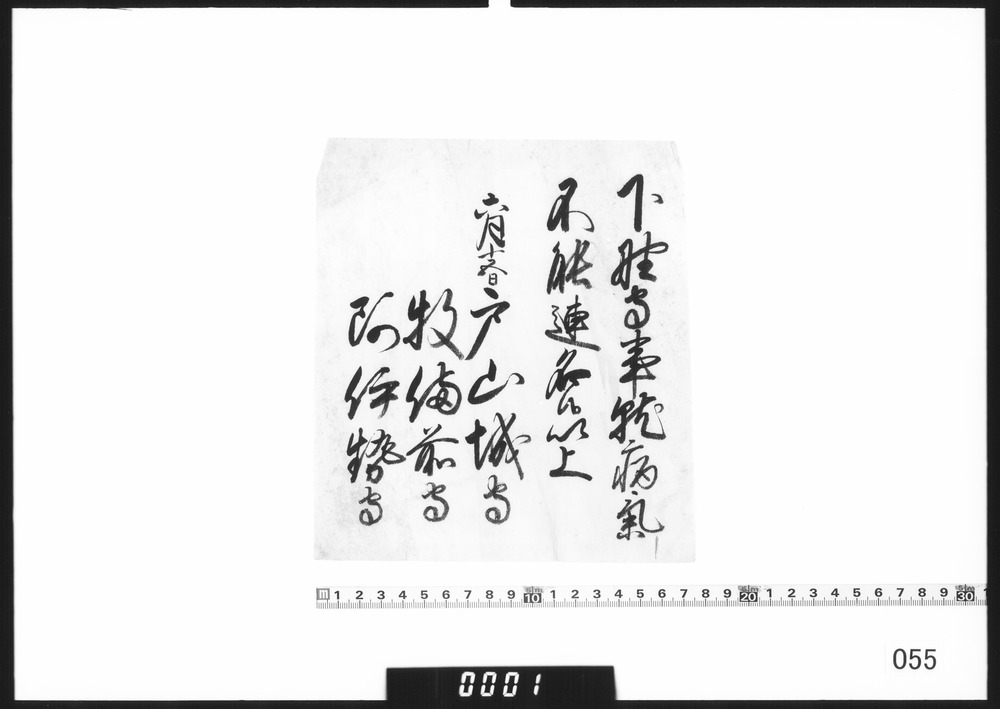 下野守事就病氣
不能連名候以上
六月
戸山城守
牧備前守
阿伊勢守
m 1 2 3 4 5 6 7 8 9 10 1 2 3 4 5 6 7 8 9 20 1 2 3 4 5 6 7 8 9 30 1
055
0001